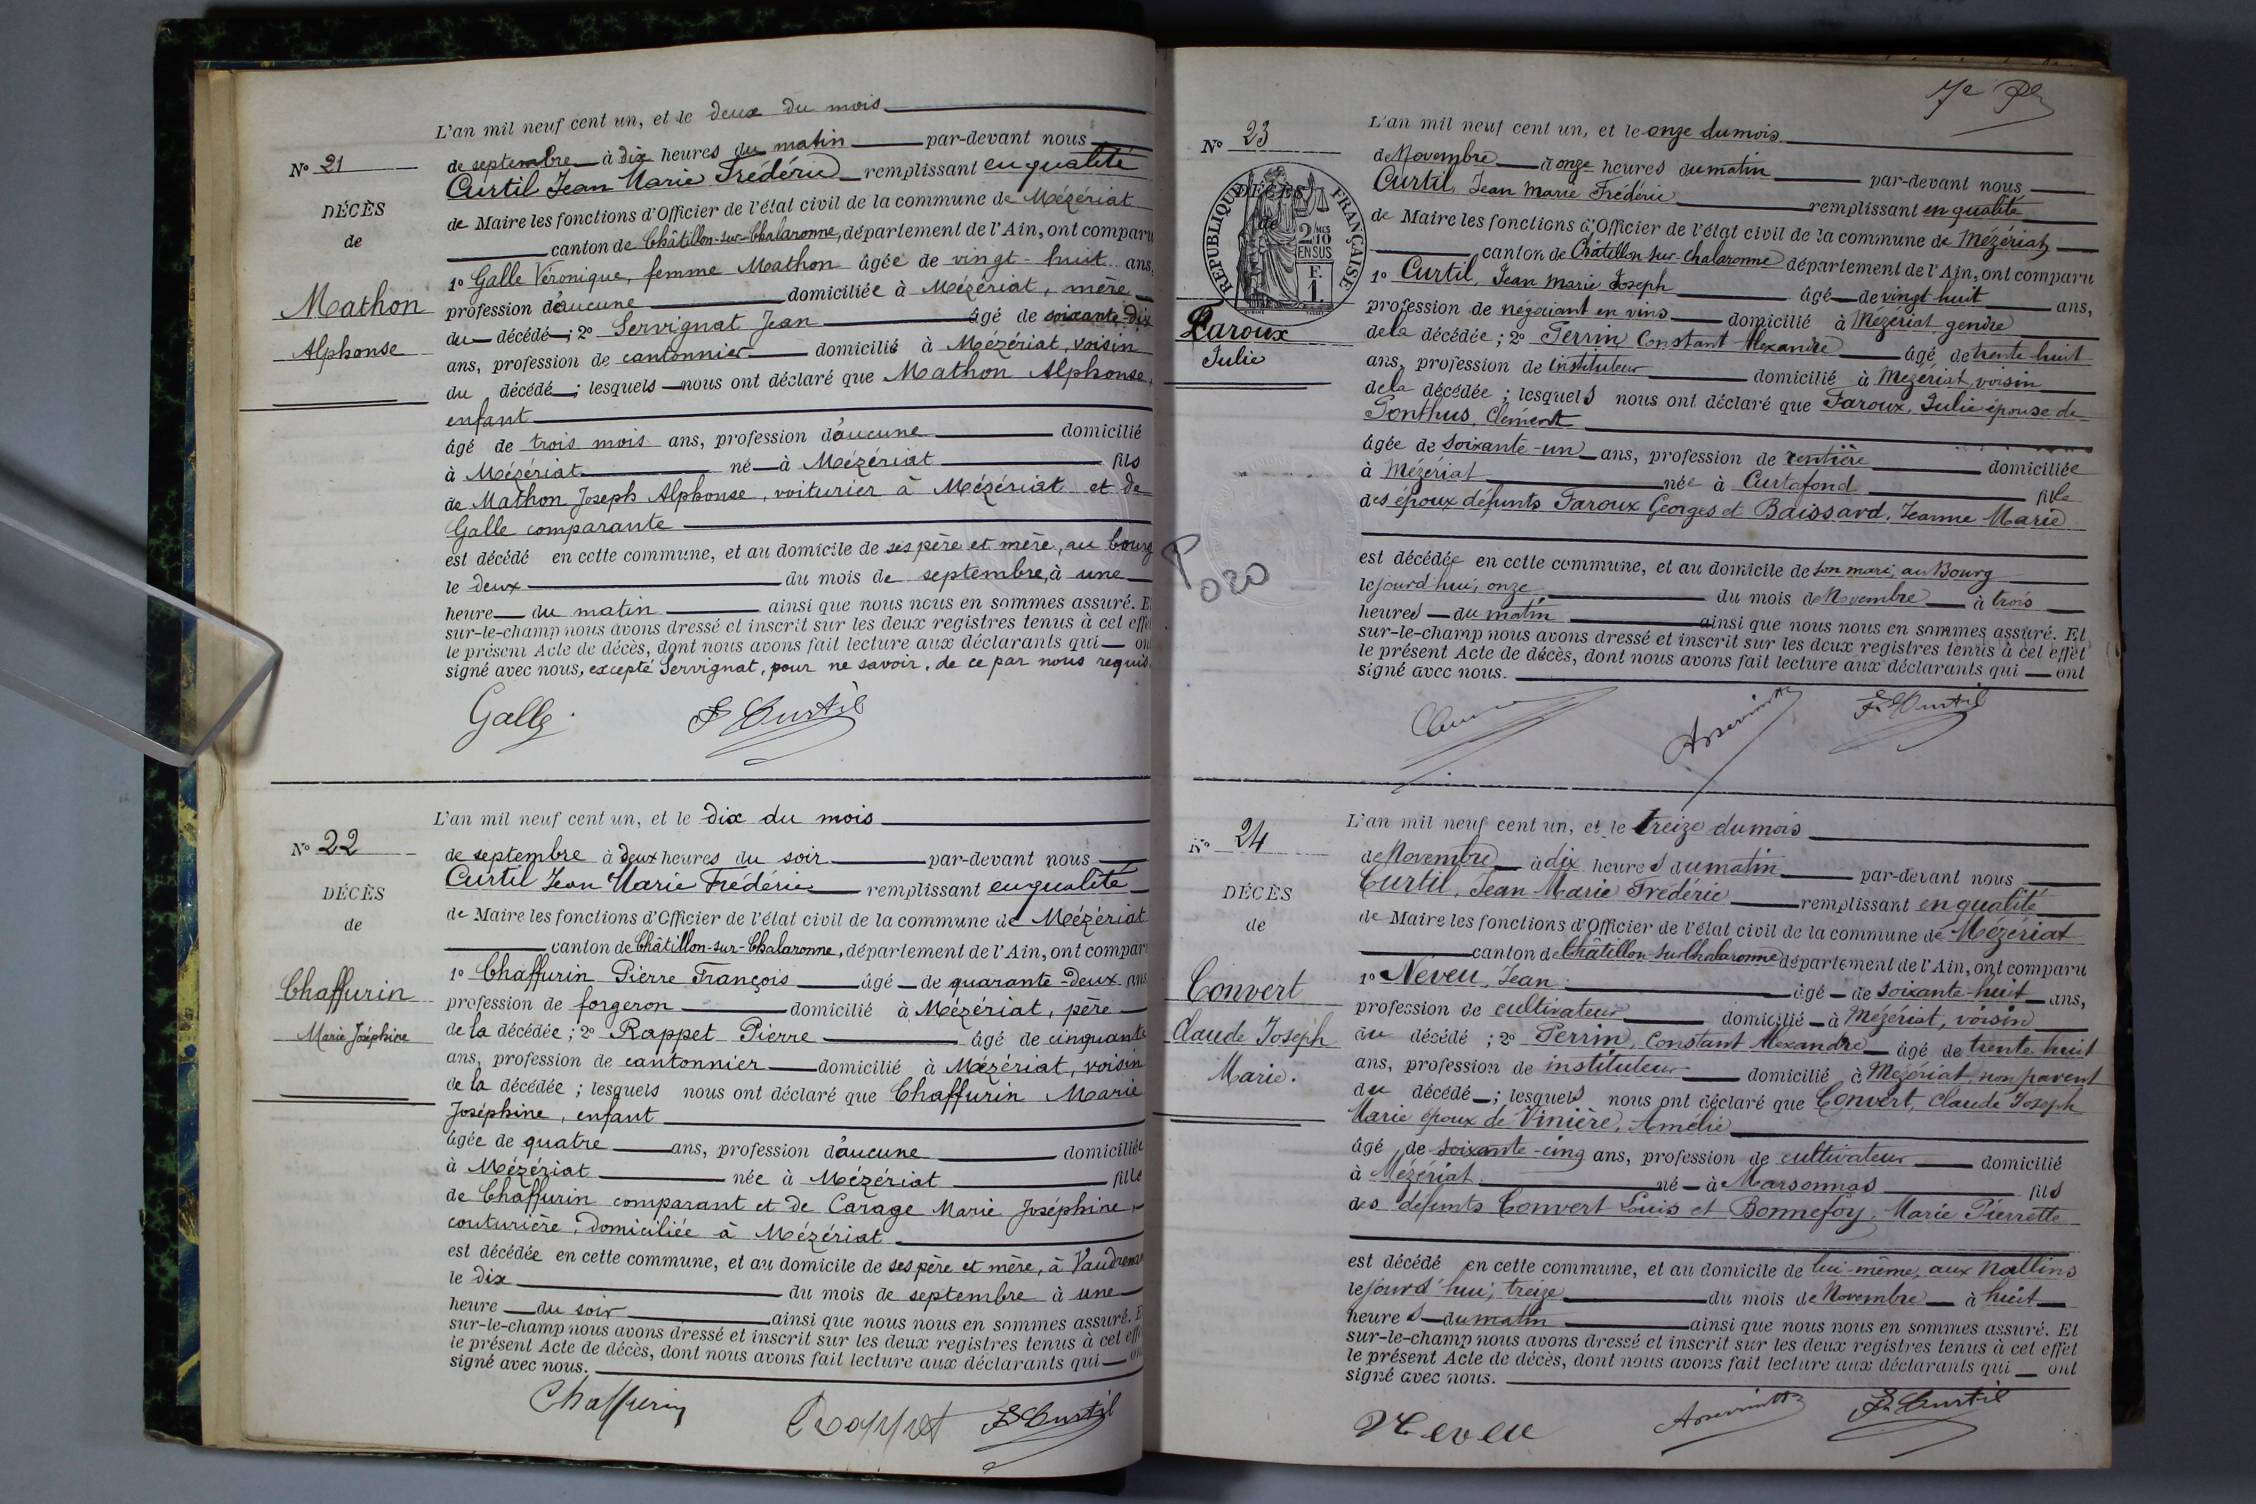 L'an mil neuf cent un, et le deux du mois
N° 21
de septembre à dix heures du matin par-devant nous
Curtil Jean Marie Frédéric remplissant en qualité
DÉCÈS
de Maire les fonctions d'Officier de l'état civil de la commune de Mézériat
de
canton de Châtillon-sur-Chalaronne, département de l'Ain, ont comparu
1° Galle Véronique, femme Mathon âgée de vingt-huit ans,
Mathon
profession d'aucune domiciliée à Mézériat, mère
du décédé ; 2° Servignat Jean âgé de soixante-dix
Alphonse
ans, profession de cantonnier domicilié à Mézériat, voisin
du décédé ; lesquels nous ont déclaré que Mathon Alphonse,
enfant
âgé de trois mois ans, profession d'aucune domicilié
à Mézériat né à Mézériat fils
de Mathon Joseph Alphonse, voiturier à Mézériat et de
Galle comparante
est décédé en cette commune, et au domicile de ses père et mère, au bourg
le deux du mois de septembre, à une
heure du matin ainsi que nous nous en sommes assuré. E
sur-le-champ nous avons dressé et inscrit sur les deux registres tenus à cet effe
le présent Acte de décès, dont nous avons fait lecture aux déclarants qui on
signé avec nous, excepté Servignat, pour ne savoir, de ce par nous requis.
Galle F Curtil
L'an mil neuf cent un, et le dix du mois
N° 22
de septembre à deux heures du soir par-devant nous
Curtil Jean Marie Frédéric remplissant en qualité
DÉCÈS
de Maire les fonctions d'Officier de l'état civil de la commune de Mézériat
de
canton de Châtillon-sur-Chalaronne, département de l'Ain, ont compar
1° Chaffurin Pierre François âgé de quarante-deux ans
Chaffurin
profession de forgeron domicilié à Mézériat, père
de la décédée ; 2° Rappet Pierre âgé de cinquante
Marie Joséphine
ans, profession de cantonnier domicilié à Mézériat, voisin
de la décédée ; lesquels nous ont déclaré que Chaffurin Marie
Joséphine, enfant
âgée de quatre ans, profession d'aucune domiciliée
à Mézériat née à Mézériat fille
de Chaffurin comparant et de Carage Marie Joséphine,
couturière, domiciliée à Mézériat
est décédée en cette commune, et au domicile de ses père et mère, à
le dix du mois de septembre à une
heure du soir ainsi que nous nous en sommes assuré. E
sur-le-champ nous avons dressé et inscrit sur les deux registres tenus à cet eff
le présent Acte de décès, dont nous avons fait lecture aux déclarants qui on
signé avec nous.
Chaffurin Rappet F Curtil
7e
L'an mil neuf cent un, et le onze du mois
N° 23
de Novembre à onze heures du matin par-devant nous
Curtil, Jean Marie Frédéric remplissant en qualité
DÉCÈS
de
RÉPUBLIQUE FRANÇAISE
2/10 MES EN SUS
F. 1.
de Maire les fonctions d'Officier de l'état civil de la commune de Mézériat
canton de Châtillon sur Chalaronne département de l'Ain, ont comparu
1° Curtil, Jean Marie Joseph âgé de vingt huit ans,
profession de négociant en vins domicilié à Mézériat, gendre
Faroux
de la décédée ; 2° Perrin Constant Alexandre âgé de trente huit
Julie
ans, profession de instituteur domicilié à Mézériat, voisin
de la décédée ; lesquels nous ont déclaré que Faroux, Julie épouse de
Ponthus, Clément
âgée de soixante-un ans, profession de rentière domiciliée
à Mézériat née à Curtafond fille
des époux défunts Faroux Georges et Baissard, Jeanne Marie
est décédée en cette commune, et au domicile de son mari, au Bourg
le jourd'hui, onze du mois de Novembre à trois
heures du matin ainsi que nous nous en sommes assuré. Et
sur-le-champ nous avons dressé et inscrit sur les deux registres tenus à cet effet
le présent Acte de décès, dont nous avons fait lecture aux déclarants qui ont
signé avec nous.
F. Curtil
L'an mil neuf cent un, et le treize du mois
N° 24
de Novembre à dix heures du matin par-devant nous
Curtil, Jean Marie Frédéric remplissant en qualité
DÉCÈS
de Maire les fonctions d'Officier de l'état civil de la commune de Mézériat
de
canton de Châtillon-sur-Chalaronne département de l'Ain, ont comparu
1° Neveu, Jean âgé de soixante-huit ans,
Convert
profession de cultivateur domicilié à Mézériat, voisin
Claude Joseph
du décédé ; 2° Perrin, Constant Alexandre âgé de trente huit
Marie.
ans, profession de instituteur domicilié à Mézériat, non parent
du décédé ; lesquels nous ont déclaré que Convert, Claude Joseph
Marie époux de Vinière, Amélie
âgé de soixante-cinq ans, profession de cultivateur domicilié
à Mézériat né à Marsonnas fils
des défunts Convert Louis et Bonnefoy, Marie Pierrette
est décédé en cette commune, et au domicile de lui-même, aux
le jourd'hui, treize du mois de Novembre à huit
heures du matin ainsi que nous nous en sommes assuré. Et
sur-le-champ nous avons dressé et inscrit sur les deux registres tenus à cet effet
le présent Acte de décès, dont nous avons fait lecture aux déclarants qui ont
signé avec nous.
Neveu F Curtil